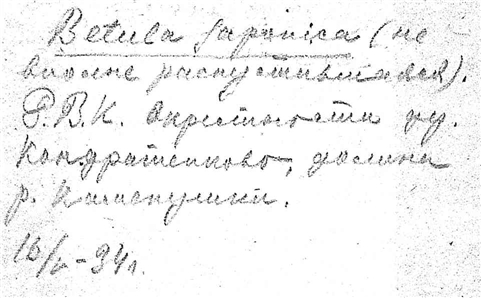 Betula japonica (не
вполне распустившаяся).
Р.В.К. Окрестности
Кондратенково, долина
р.
16/V-34г.